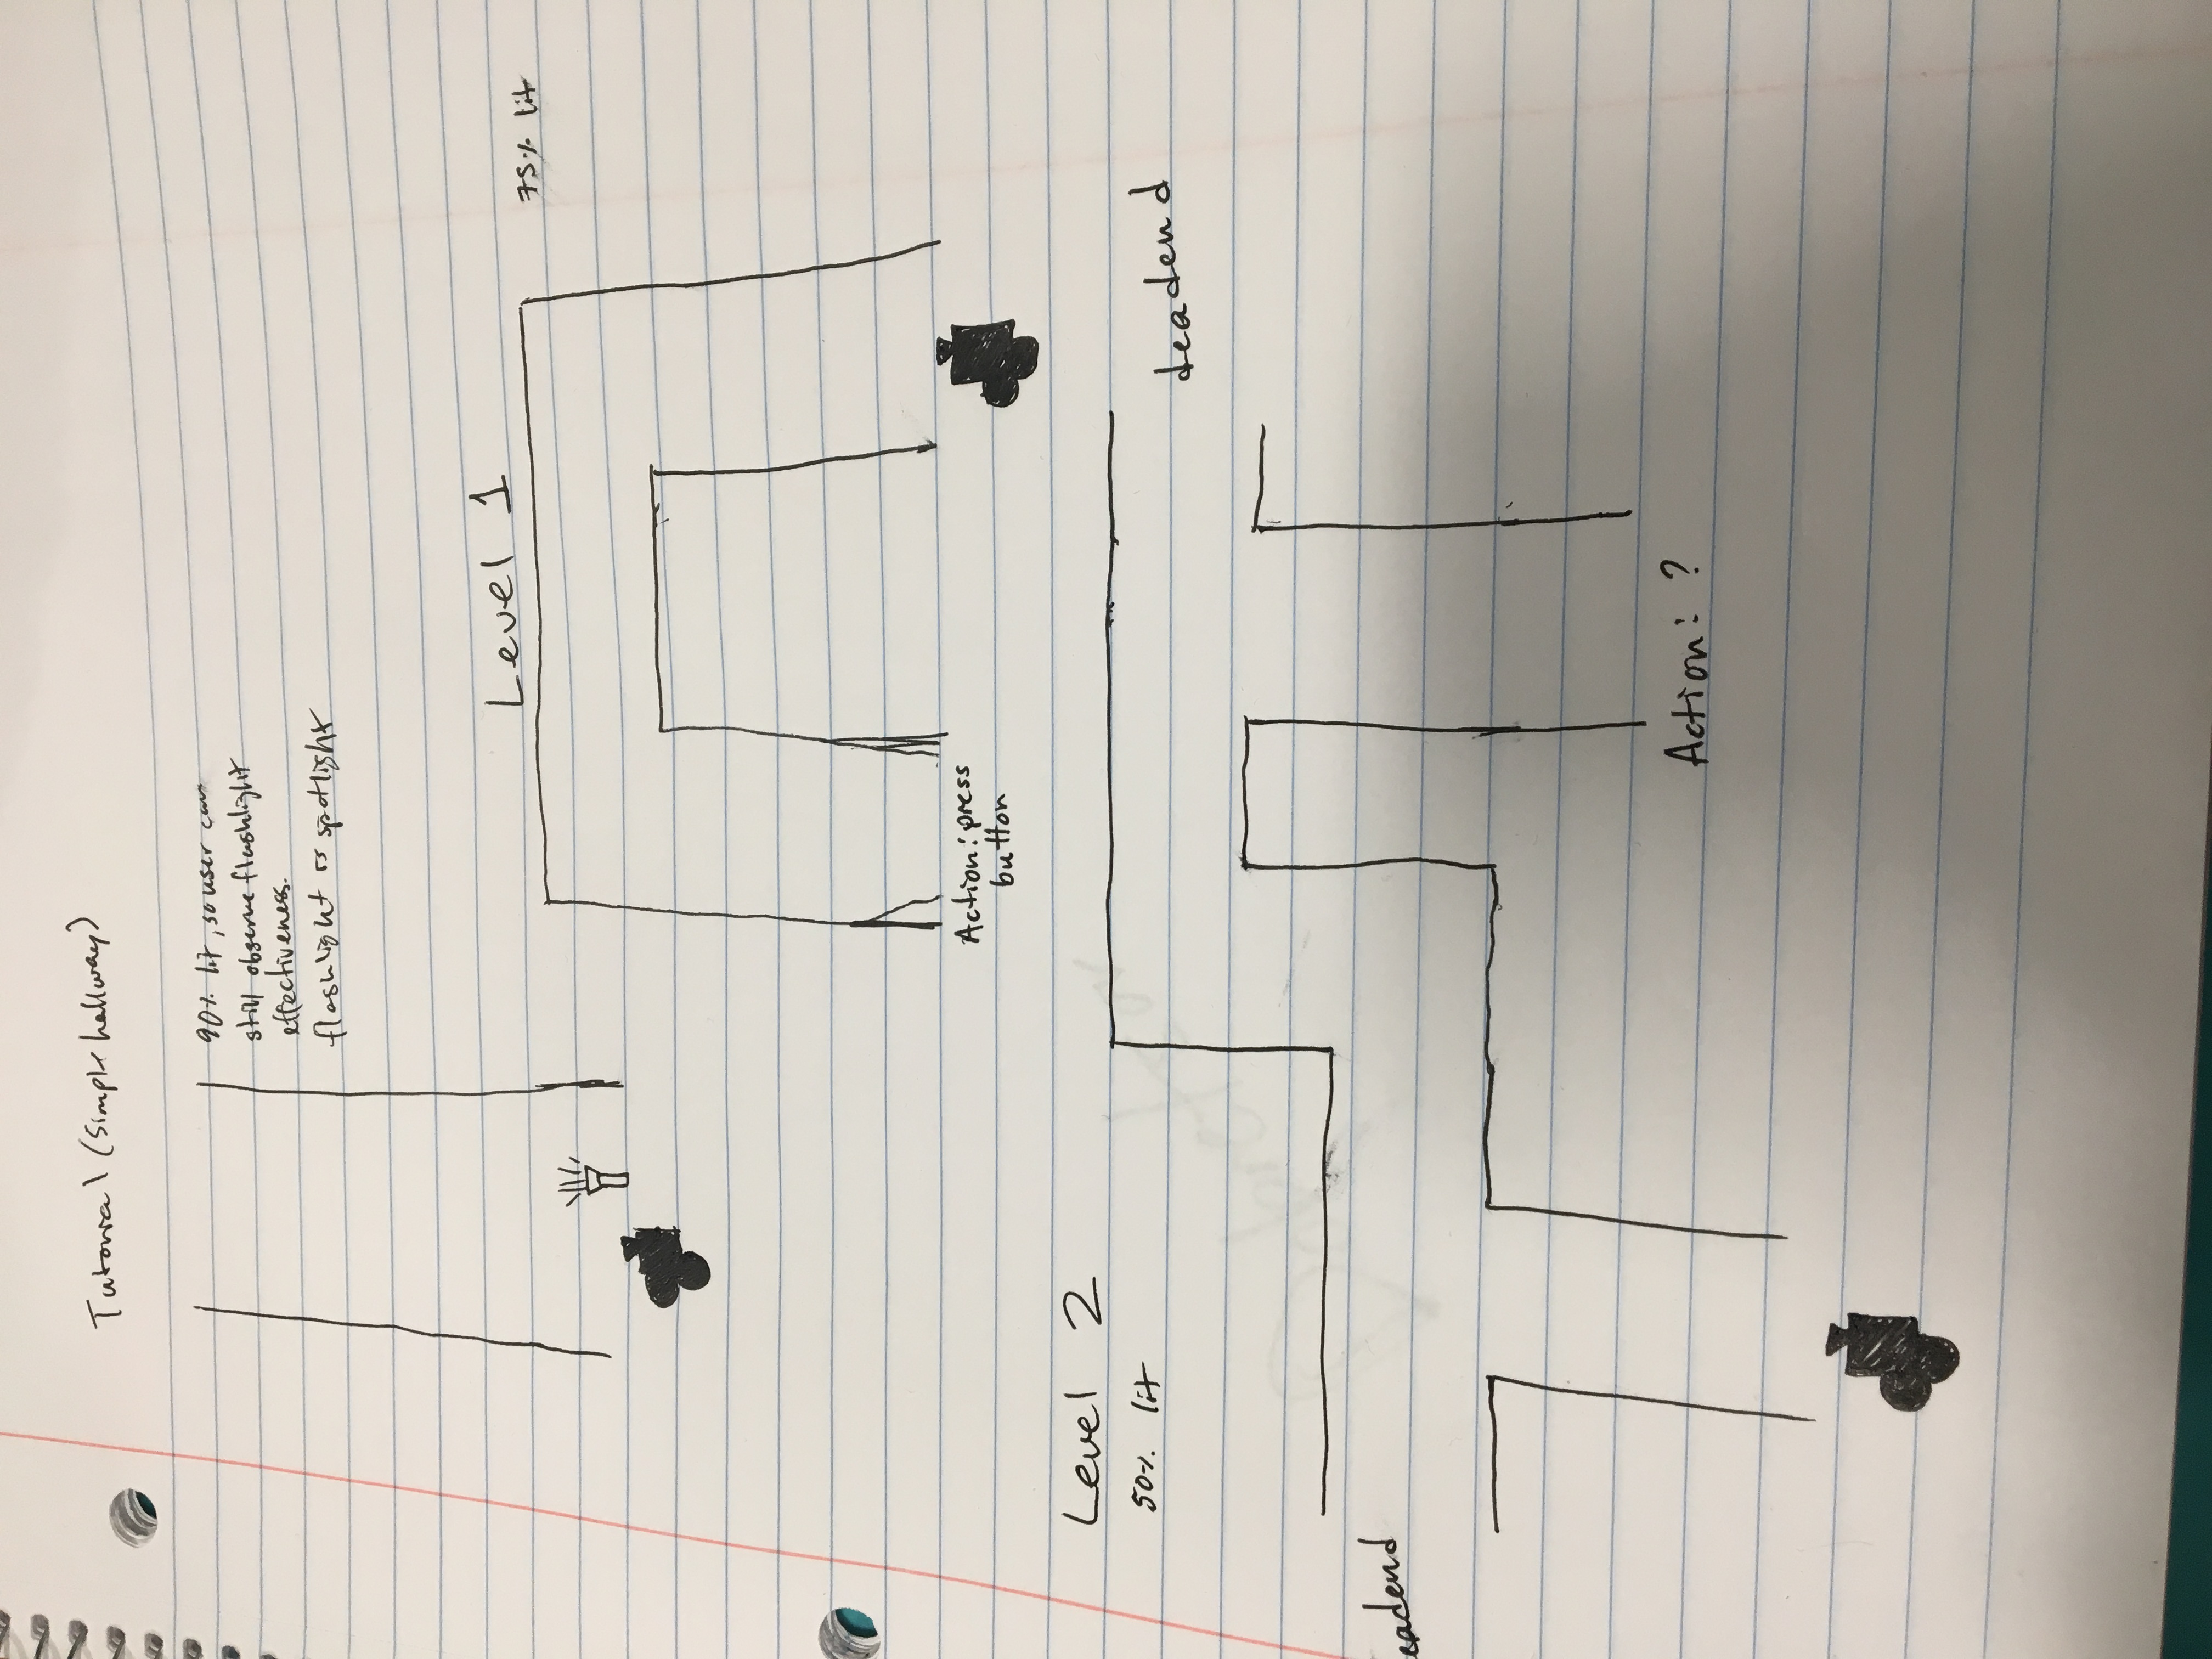 Tutorial (simple hallway)
90% lit, so user can
still observe flashlight
effectiveness.
flashlight is spotlight
Level 1
75% lit
Action: press
button
Level 2
50% lit
deadend
eadend
Action: ?